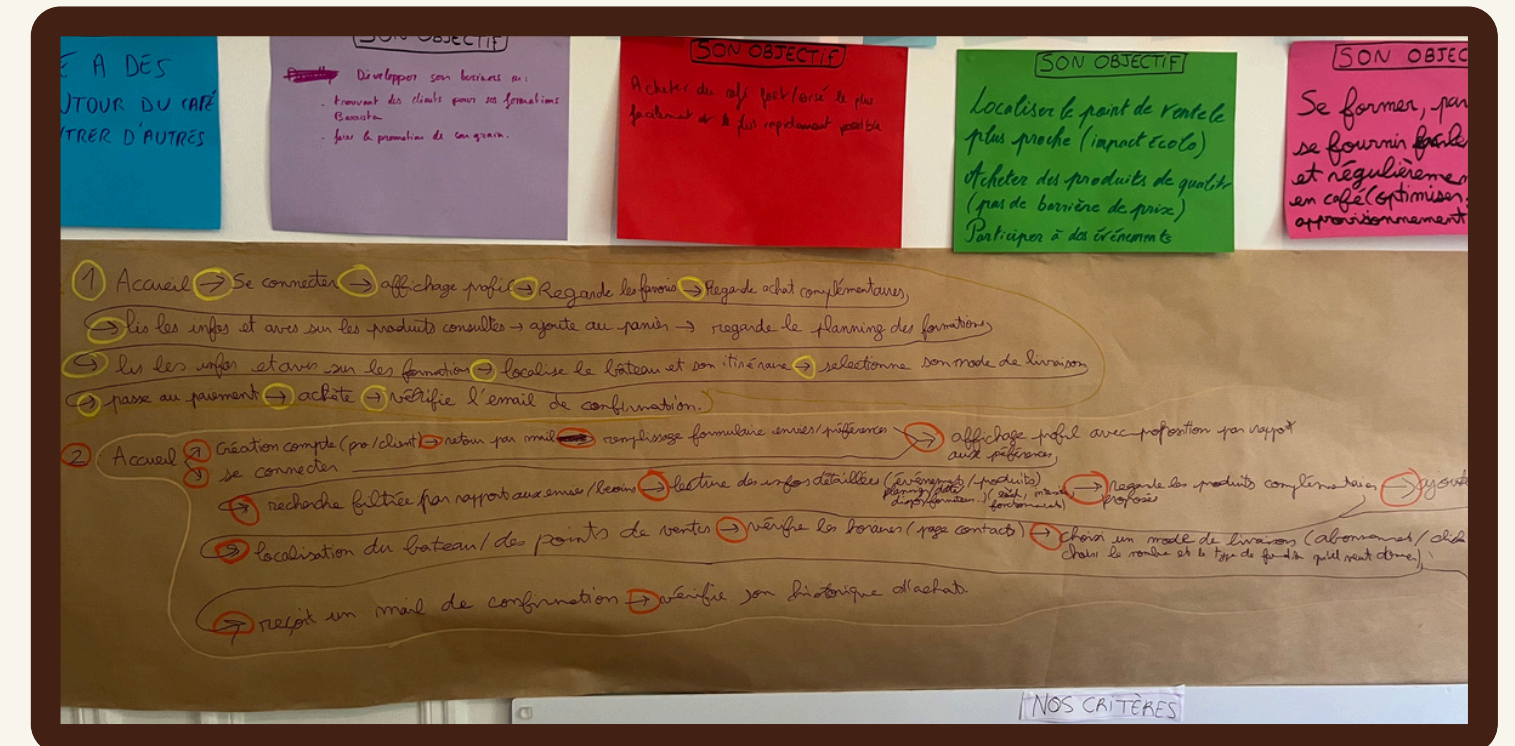 E A DES
UTOUR DU CAFÉ
NTRER D'AUTRES
SON OBJECTIF
Développer son business en:
. trouvant des clients pour ses formations
Barista
. faire la promotion de son grain.
SON OBJECTIF
Acheter du café fort/corsé le plus
facilement et le plus rapidement possible
SON OBJECTIF
Localiser le point de vente le
plus proche (impact écolo)
Acheter des produits de qualité
(pas de barrière de prix)
Participer à des événements
SON OBJEC
Se former, par
se fournir
et régulièremen
en café (optimiser
approvisionnement
1 Accueil → Se connecter → affichage profil → Regarde les favoris → Regarde achat complémentaires,
→ lis les infos et avis sur les produits consultés → ajoute au panier → regarde le planning des formations
→ lis les infos et avis sur les formations → localise le bâteau et son itinéraire → selectionne son mode de livraison
→ passe au paiement → achète → vérifie l'email de confirmation.
2 Accueil → Création compte (pro/client) → retour par mail → remplissage formulaire envies/préférences → affichage profil avec proposition par rapport
aux préférences
→ se connecter
→ recherche filtrée par rapport aux envies/besoins → lecture des infos détaillées (événements/produits)
planning/date
→ regarde les produits complémentaires
proposés
→ ajoute
→ localisation du bateau/des points de ventes → vérifie les horaires (page contacts) → choisi un mode de livraison (abonnement/click
choisi le nombre et le type de
qu'il veut
→ reçoit un mail de confirmation → vérifie son historique d'achats.
NOS CRITÈRES